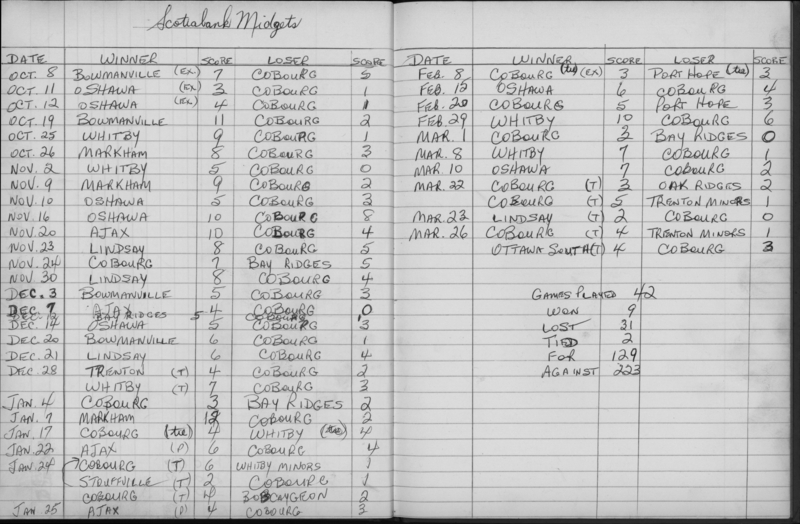 Scotiabank Midgets
DATE WINNER SCORE LOSER SCORE
OCT. 8 BOWMANVILLE (EX.) 7 COBOURG 5
OCT. 11 OSHAWA (EX.) 3 COBOURG 1
OCT. 12 OSHAWA (EX.) 4 COBOURG 1
OCT. 19 BOWMANVILLE 11 COBOURG 2
OCT. 25 WHITBY 9 COBOURG 1
OCT. 26 MARKHAM 8 COBOURG 3
NOV. 2 WHITBY 5 COBOURG 0
NOV. 9 MARKHAM 9 COBOURG 2
NOV. 10 OSHAWA 5 COBOURG
NOV. 16 OSHAWA 10 COBOURG 8
NOV. 20 AJAX 10 COBOURG 4
NOV. 23 LINDSAY 8 COBOURG 5
NOV. 24 COBOURG 7 BAY RIDGES 5
NOV. 30 LINDSAY 8 COBOURG 4
DEC. 3 BOWMANVILLE 5 COBOURG 3
DEC. 7 AJAX 4 COBOURG 0
BAY RIDGES 5 COBOURG 1
DEC. 14 OSHAWA 5 COBOURG 3
DEC. 20 BOWMANVILLE 6 COBOURG 1
DEC. 21 LINDSAY 6 COBOURG 4
DEC. 28 TRENTON (T) 4 COBOURG 2
WHITBY (T) 7 COBOURG 3
JAN. 4 COBOURG 3 BAY RIDGES 2
JAN. 7 MARKHAM 12 COBOURG 2
JAN. 17 COBOURG (tie) 4 WHITBY (tie) 4
JAN. 22 AJAX (P) 6 COBOURG 4
JAN. 24 COBOURG (T) 6 WHITBY MINORS 1
STOUFFVILLE (T) 2 COBOURG 1
COBOURG (T) 4 BOBCAYGEON 2
JAN 25 AJAX (P) 4 COBOURG 3
DATE WINNER SCORE LOSER SCORE
FEB. 8 COBOURG (tie) (EX) 3 PORT HOPE (tie) 3
FEB. 12 OSHAWA 6 COBOURG 4
FEB. 20 COBOURG 5 PORT HOPE 3
FEB. 29 WHITBY 10 COBOURG 6
MAR. 1 COBOURG BAY RIDGES 0
MAR. 8 WHITBY 7 COBOURG 1
MAR. 10 OSHAWA 7 COBOURG 2
MAR. 22 COBOURG (T) 3 OAK RIDGES 2
COBOURG (T) 5 TRENTON MINORS 1
MAR. 23 LINDSAY (T) 2 COBOURG 0
MAR. 26 COBOURG (T) 4 TRENTON MINORS 1
OTTAWA SOUTH (T) 4 COBOURG 3
GAMES PLAYED 42
WON 9
LOST 31
TIED 2
FOR 129
AGAINST 223